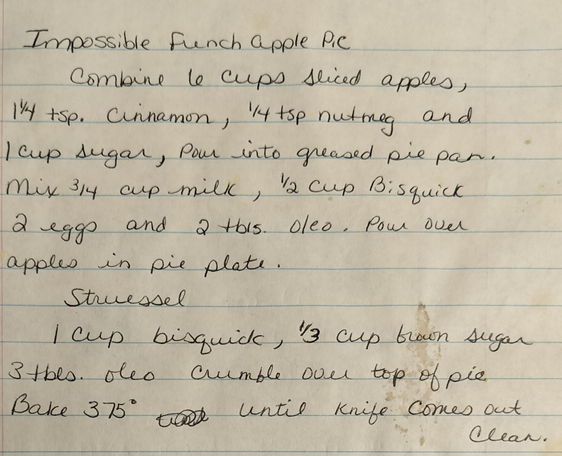 Impossible French Apple Pie
Combine 6 cups sliced apples,
1 1/4 tsp. Cinnamon, 1/4 tsp nutmeg and
1 cup sugar, Pour into greased pie pan.
Mix 3/4 cup milk, 1/2 cup Bisquick
2 eggs and 2 tbls. oleo. Pour over
apples in pie plate.
Struessel
1 cup bisquick, 1/3 cup brown sugar
3 tbls. oleo crumble over top of pie
Bake 375° until knife comes out
Clean.